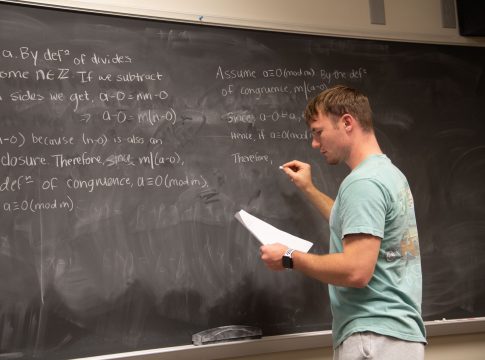 a. By defⁿ of divides
ome n∈ℤ. If we subtract
sides we get, a-0=mn-0
⇒ a-0=m(n-0)
n-0) because (n-0) is also an
closure. Therefore, since m|(a-0),
defⁿ of congruence, a≡0(mod m),
a≡0(mod m).
Assume a≡0(mod m). By the defⁿ
of congruence, m|(a-0)
Since a-0=a,
Hence, if a≡0(mod m)
Therefore,